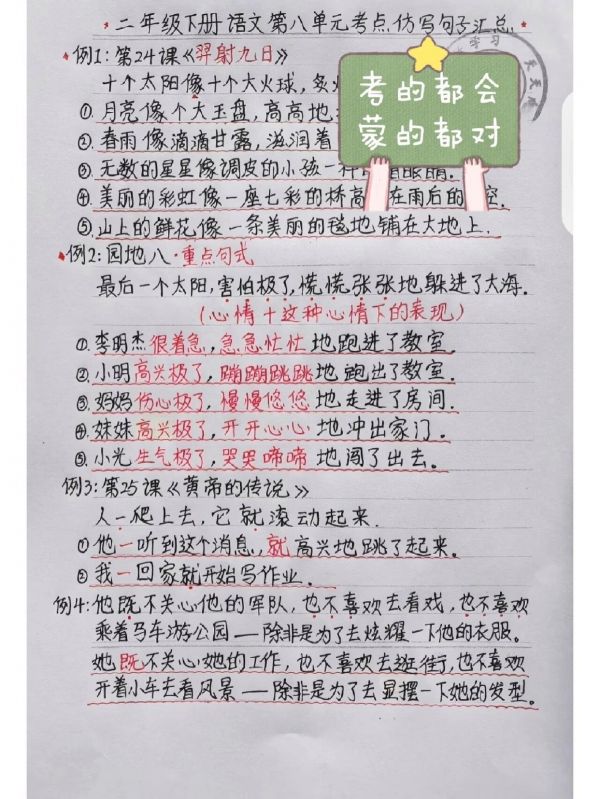 二年级下册语文第八单元考点仿写句子汇总.
学习
例1:第24课《羿射九日》
十个太阳像十个大火球,炙
考的都会
蒙的都对
①.月亮像个大玉盘,高高地
②.春雨像滴滴甘露,滋润着
③.无数的星星像调皮的小孩一样 着眼睛.
④.美丽的彩虹像一座七彩的桥高 在雨后的 空.
⑤.山上的鲜花像一条美丽的毯地铺在大地上.
例2:园地八·重点句式
最后一个太阳,害怕极了,慌慌张张地躲进了大海.
(心情+这种心情下的表现)
①.李明杰很着急,急急忙忙地跑进了教室.
②.小明高兴极了,蹦蹦跳跳地跑出了教室.
③.妈妈伤心极了,慢慢悠悠地走进了房间.
④.妹妹高兴极了,开开心心地冲出家门.
⑤.小光生气极了,哭哭啼啼地闯了出去.
例3:第25课《黄帝的传说》
人一爬上去,它就滚动起来.
①他一听到这个消息,就高兴地跳了起来.
②我一回家就开始写作业.
例4:他既不关心他的军队,也不喜欢去看戏,也不喜欢
乘着马车游公园——除非是为了去炫耀一下他的衣服。
她既不关心她的工作,也不喜欢去逛街,也不喜欢
开着小车去看风景——除非是为了去显摆一下她的发型.